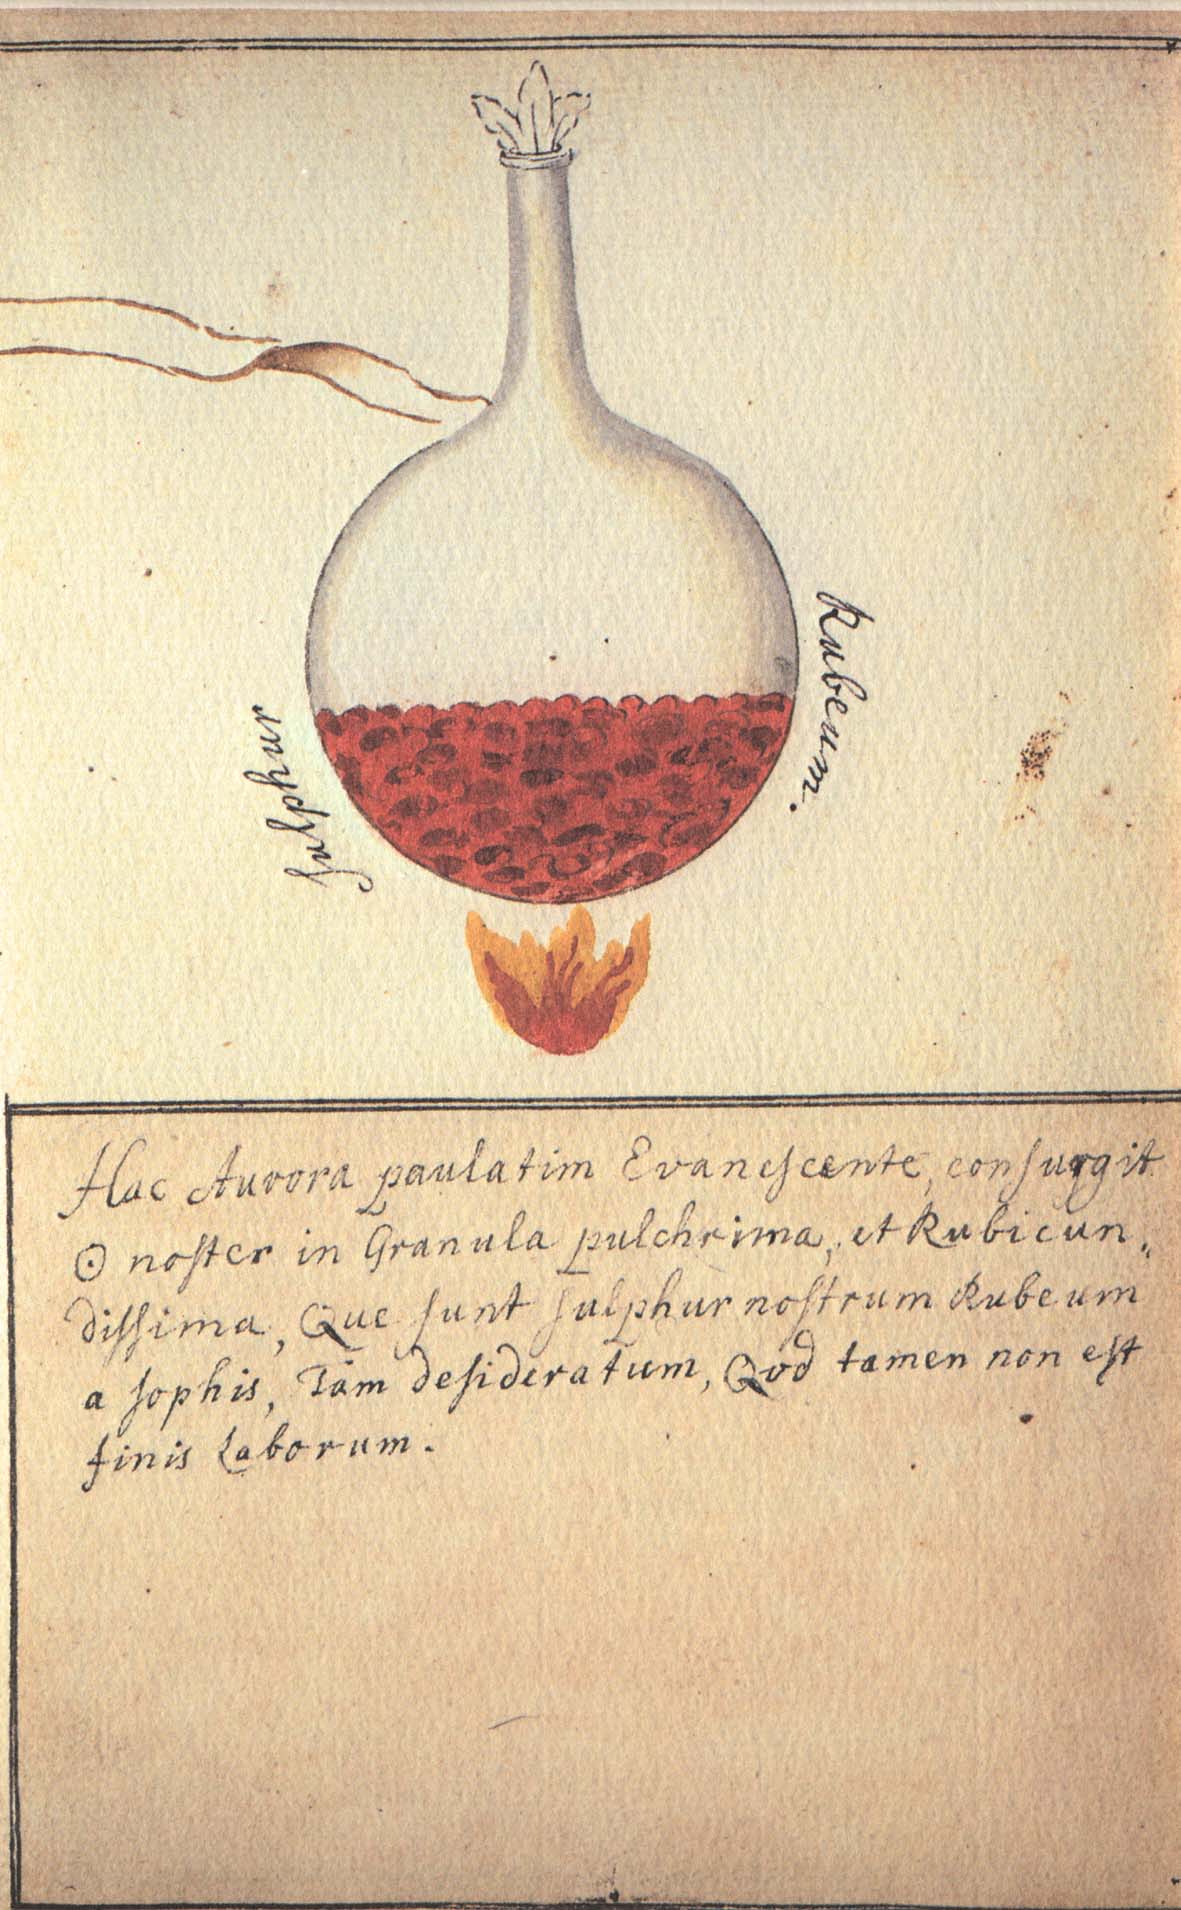 Sulphur
Rubeum.
Hac Aurora paulatim Evanescente, consurgit
☉ noster in Granula pulchrima, et Rubicun„
dissima, Que sunt sulphur nostrum Rubeum
a sophis, Tam desideratum, Qvd tamen non est
finis Laborum.